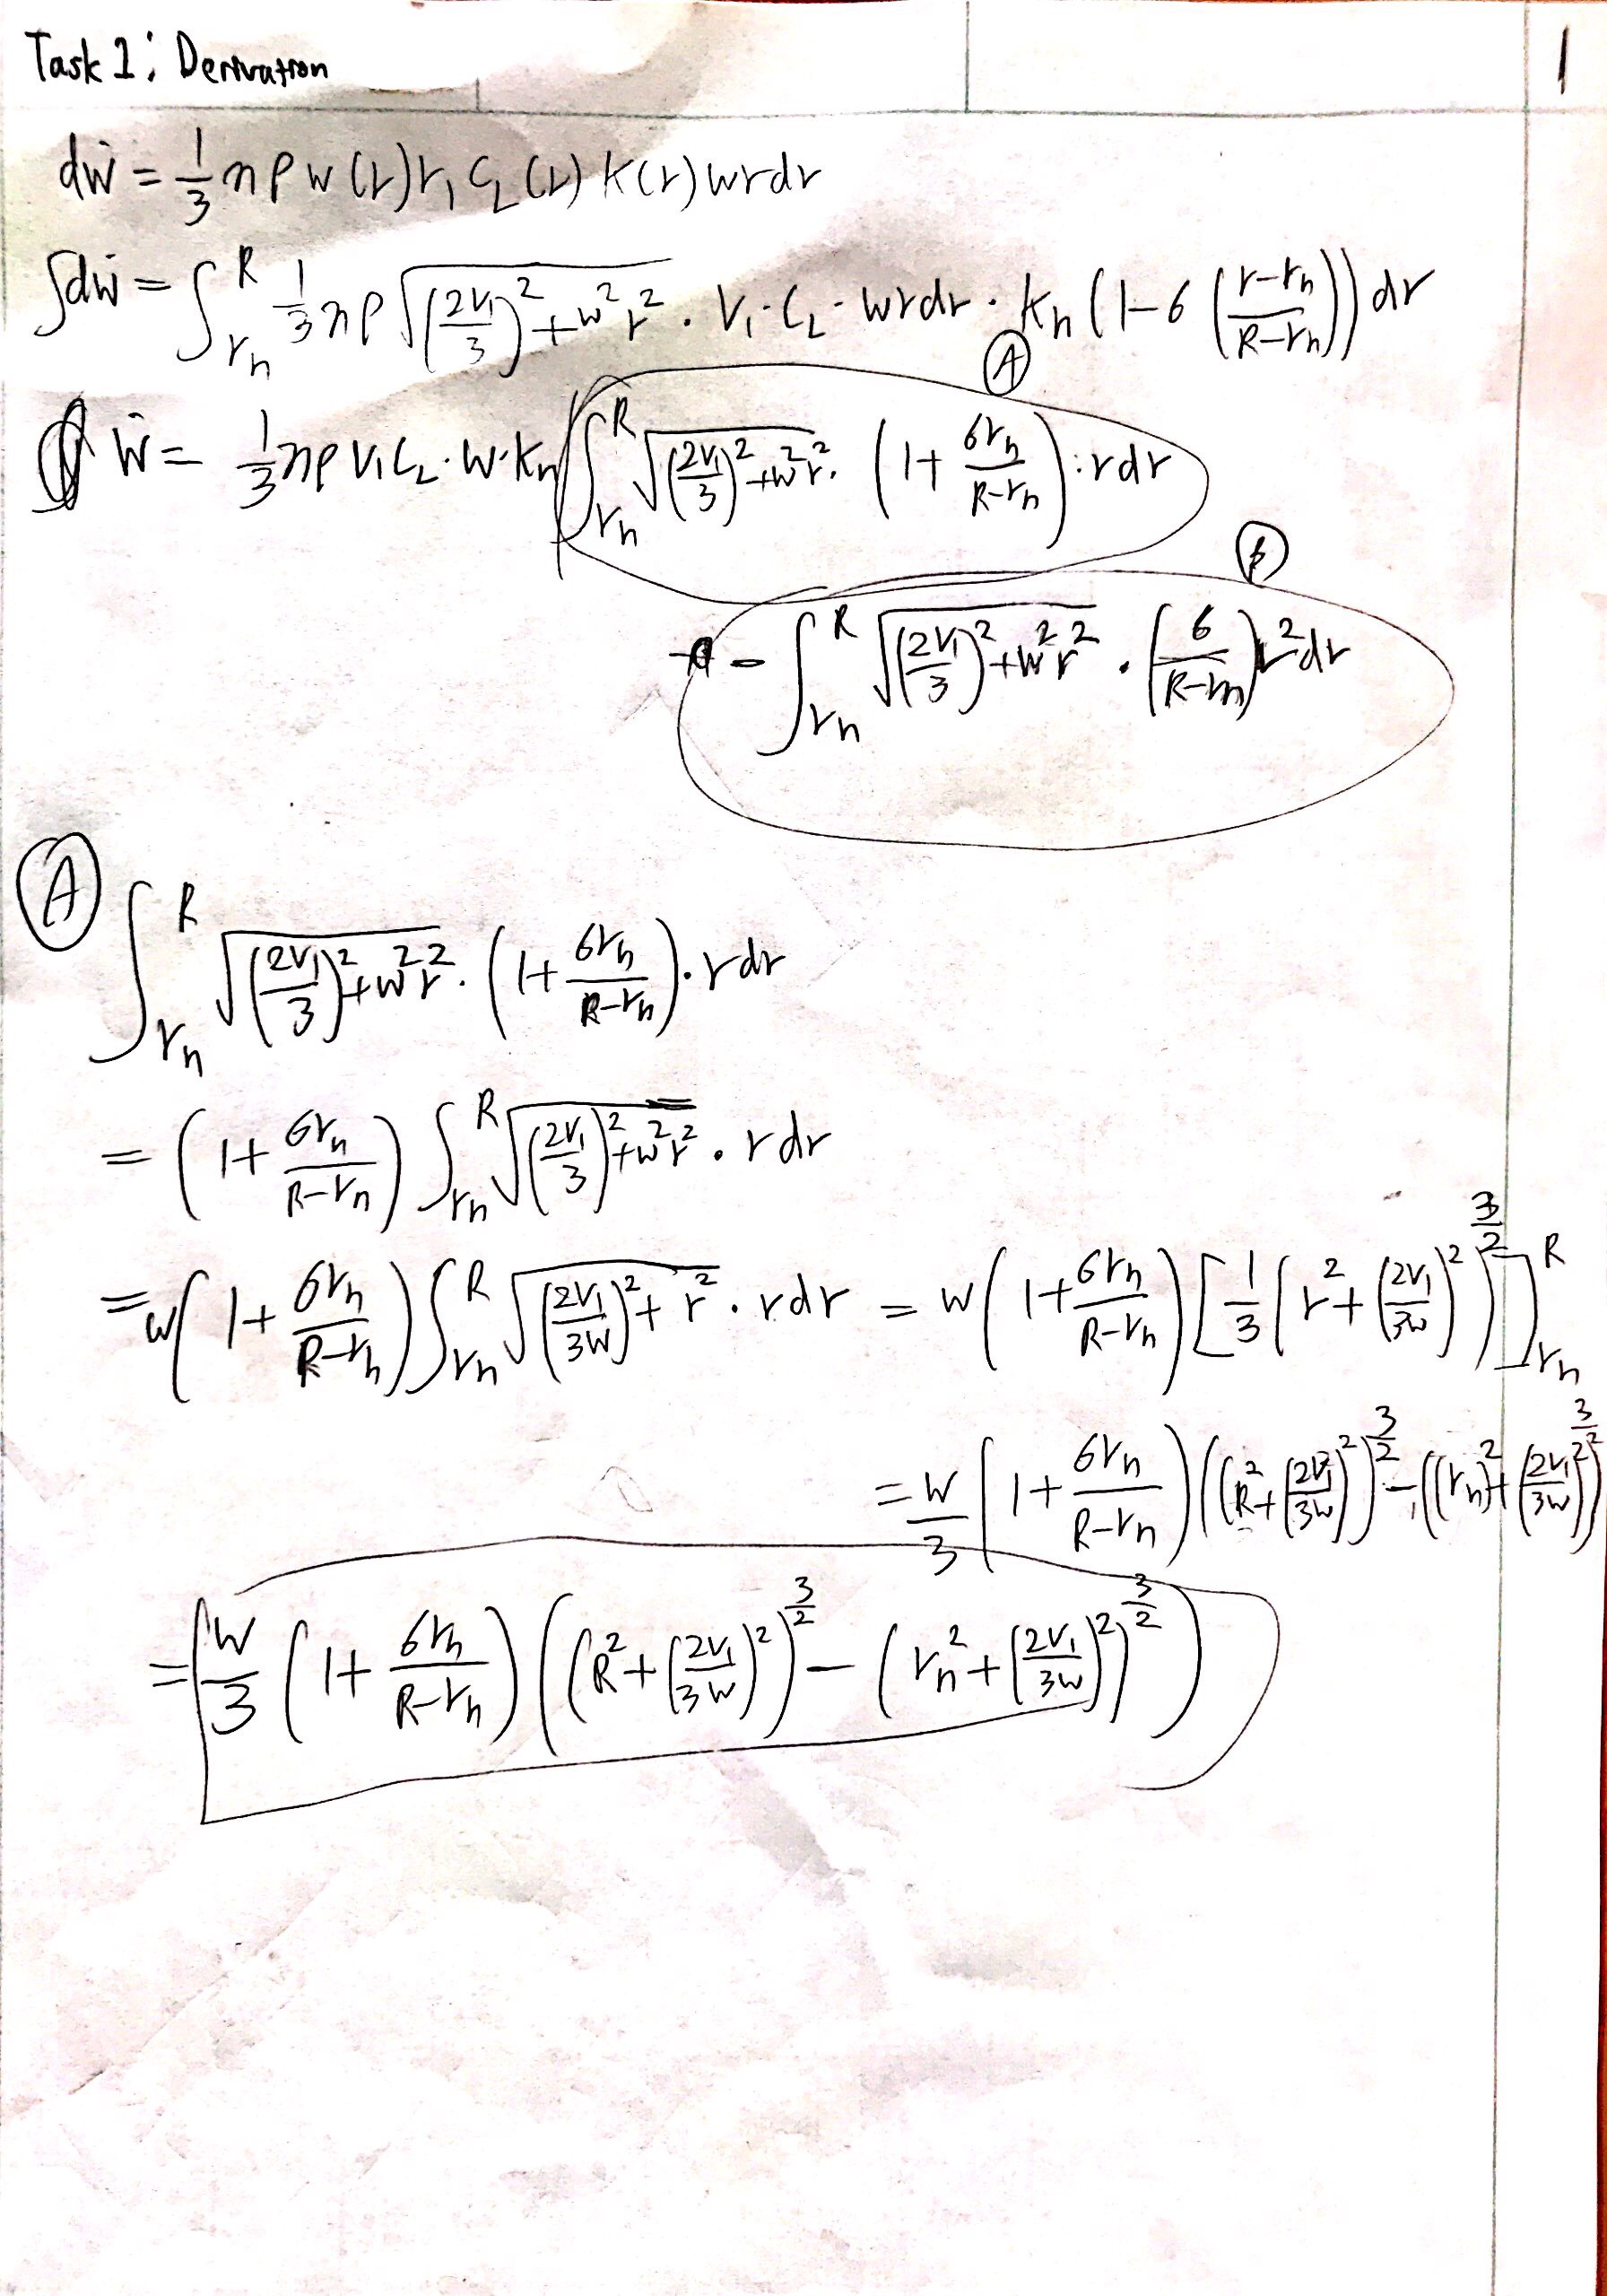 Task 1: Derivation
1
dẇ = 1/3 n ρ w(r) r₁ C_L(r) K(r) w r dr
∫dẇ = ∫_{r_h}^{R} 1/3 n ρ √((2V₁/3)² + w²r²) · V₁ · C_L · w r dr · K_h (1 - 6 ((r - r_h)/(R - r_h))) dr
Ẇ = 1/3 n ρ V₁ C_L · w · K_h ∫_{r_h}^{R} √((2V₁/3)² + w²r²) · (1 + 6r_h/(R - r_h)) · r dr
A
B
- ∫_{r_h}^{R} √((2V₁/3)² + w²r²) · (6/(R - r_h)) r² dr
A
∫_{r_h}^{R} √((2V₁/3)² + w²r²) · (1 + 6r_h/(R - r_h)) · r dr
= (1 + 6r_h/(R - r_h)) ∫_{r_h}^{R} √((2V₁/3)² + w²r²) · r dr
= w(1 + 6r_h/(R - r_h)) ∫_{r_h}^{R} √((2V₁/3w)² + r²) · r dr = w(1 + 6r_h/(R - r_h)) [1/3 (r² + (2V₁/3w)²)^{3/2}]_{r_h}^{R}
= w/3 (1 + 6r_h/(R - r_h)) ((R² + (2V₁/3w)²)^{3/2} - ((r_h)² + (2V₁/3w)²)^{3/2})
= w/3 (1 + 6r_h/(R - r_h)) ((R² + (2V₁/3w)²)^{3/2} - (r_h² + (2V₁/3w)²)^{3/2})